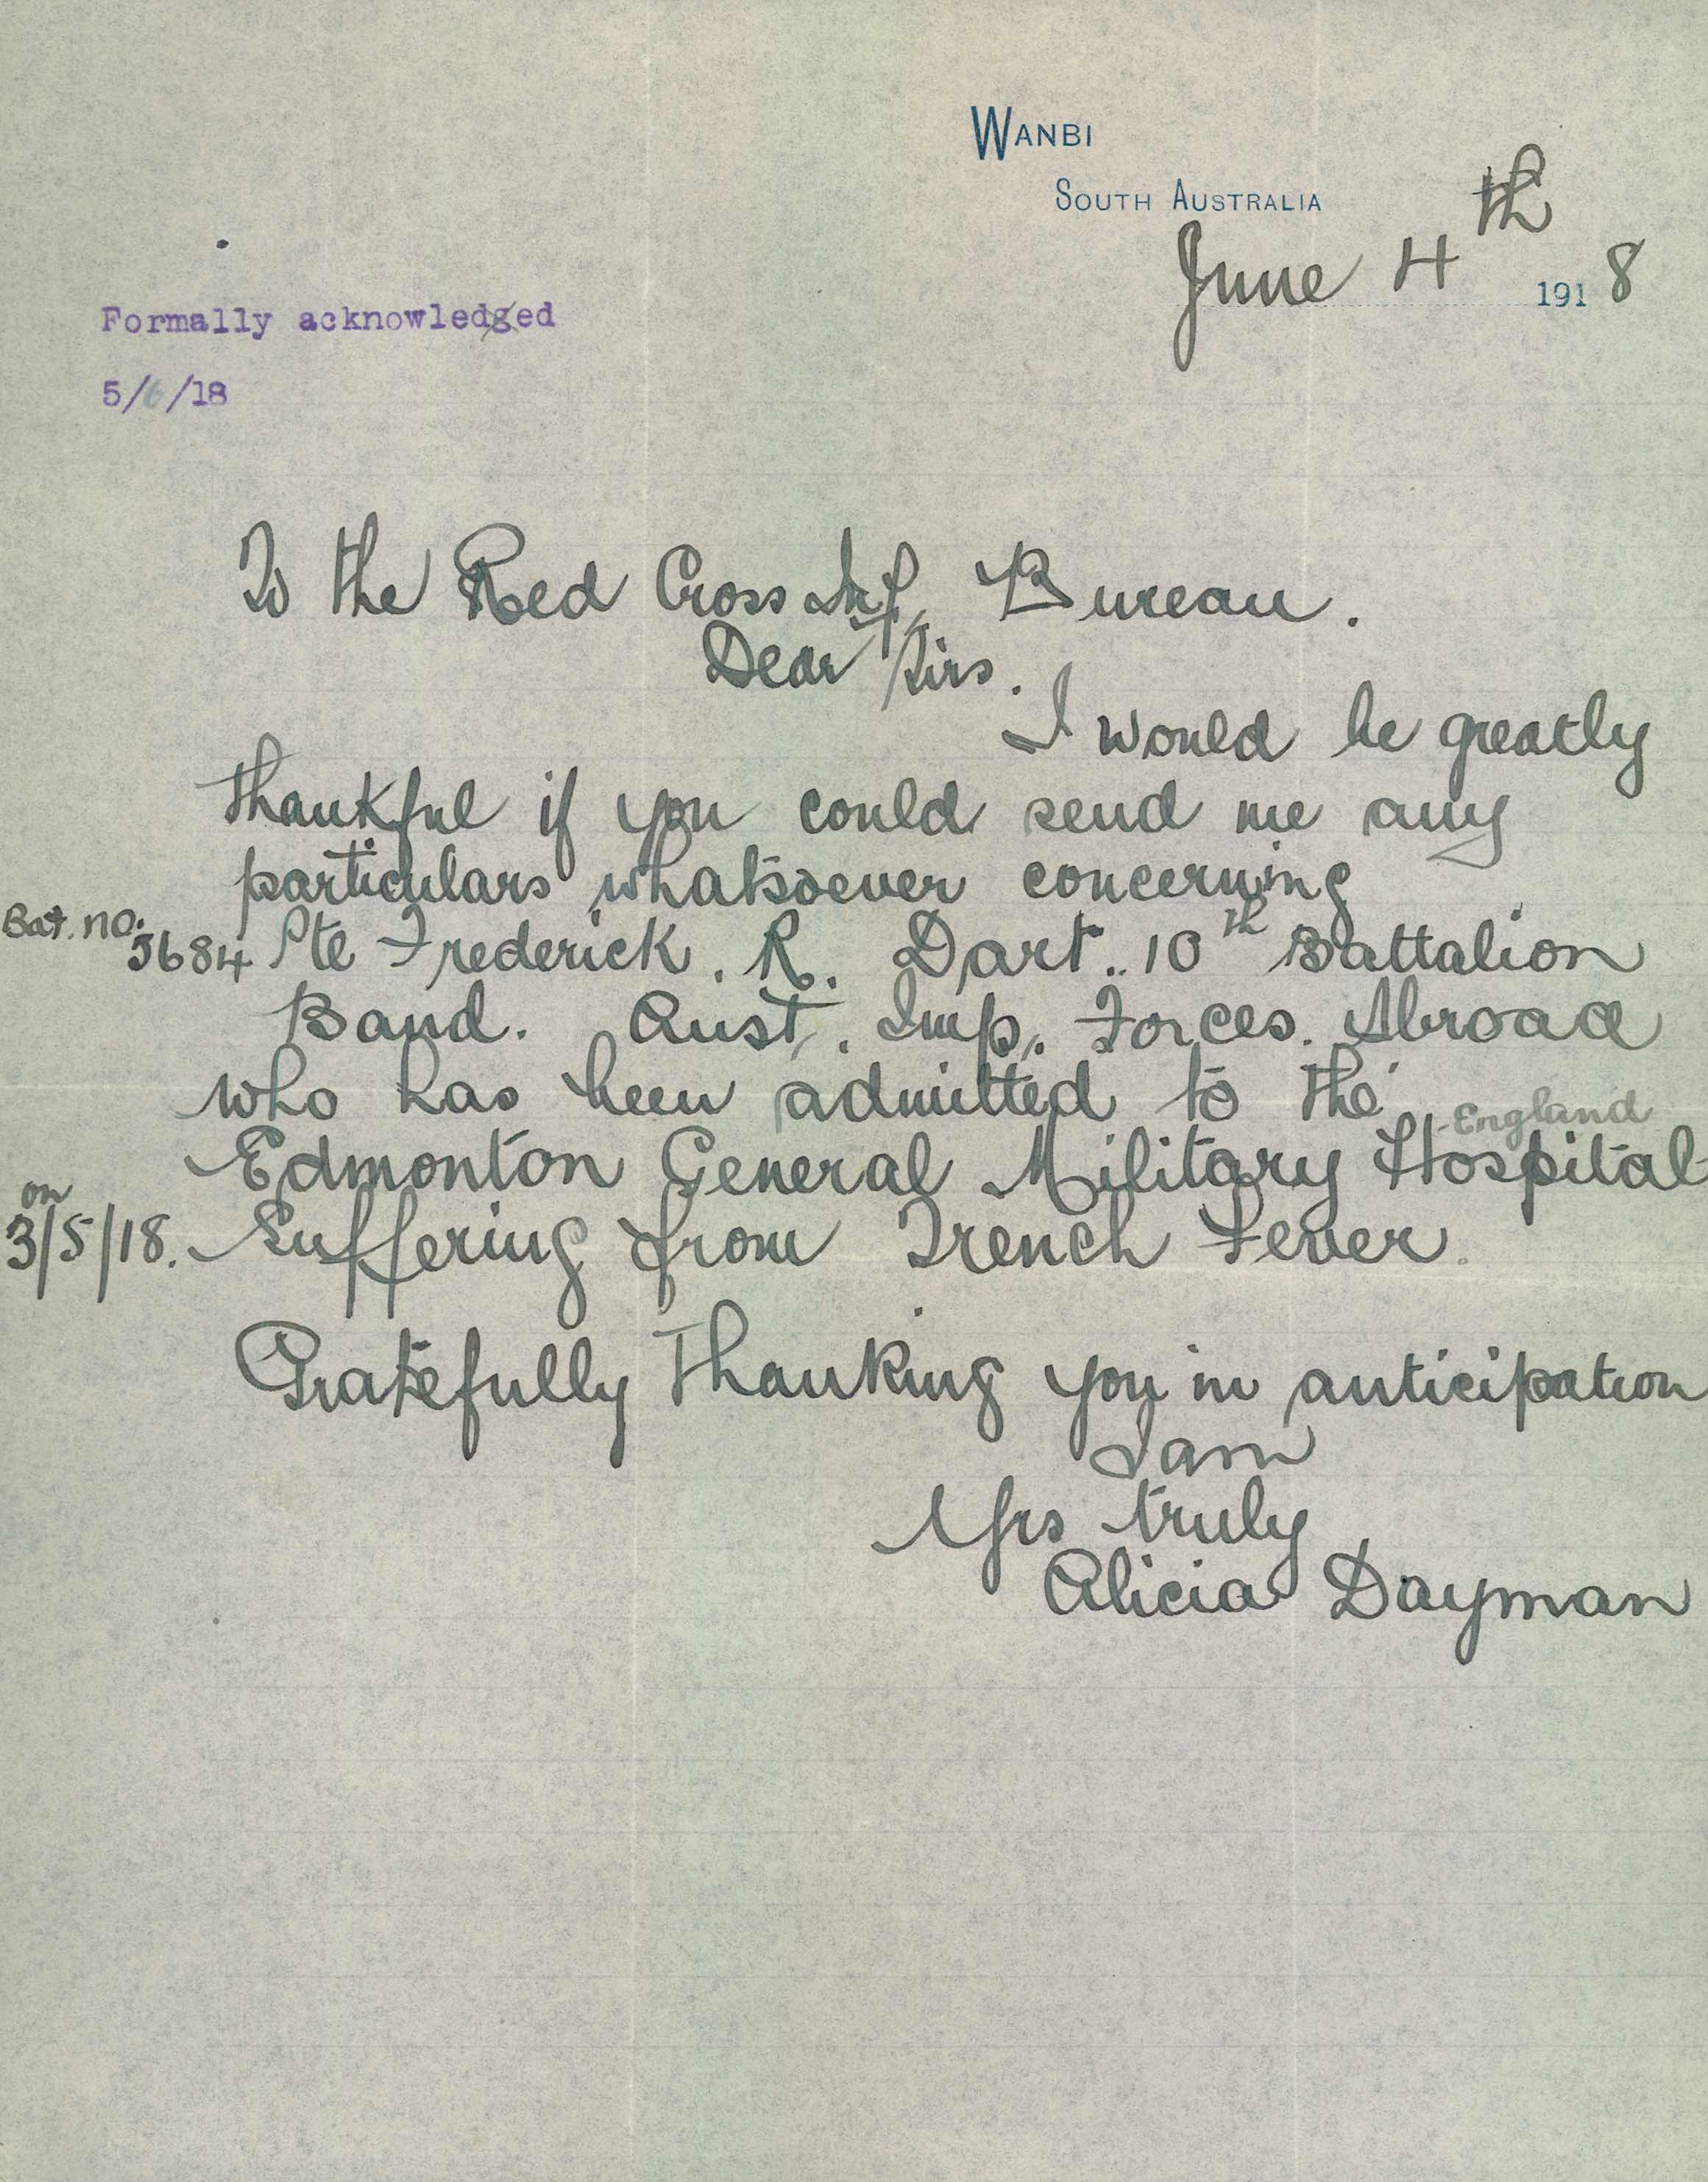 WANBI
SOUTH AUSTRALIA
June 4th 1918
Formally acknowledged
5/6/18
To the Red Cross Inf, Bureau.
Dear Sirs.
I would be greatly
thankful if you could send me any
particulars whatsoever concerning
Bat. no. 5684 Pte Frederick. R. Dart.. 10th Battalion
Band. Aust,. Imp,. Forces. Abroad
who has been admitted to the
England
Edmonton General Military Hospital
on 3/5/18. Suffering from Trench Fever.
Gratefully thanking you in anticipation
I am
Yrs truly
Alicia Dayman